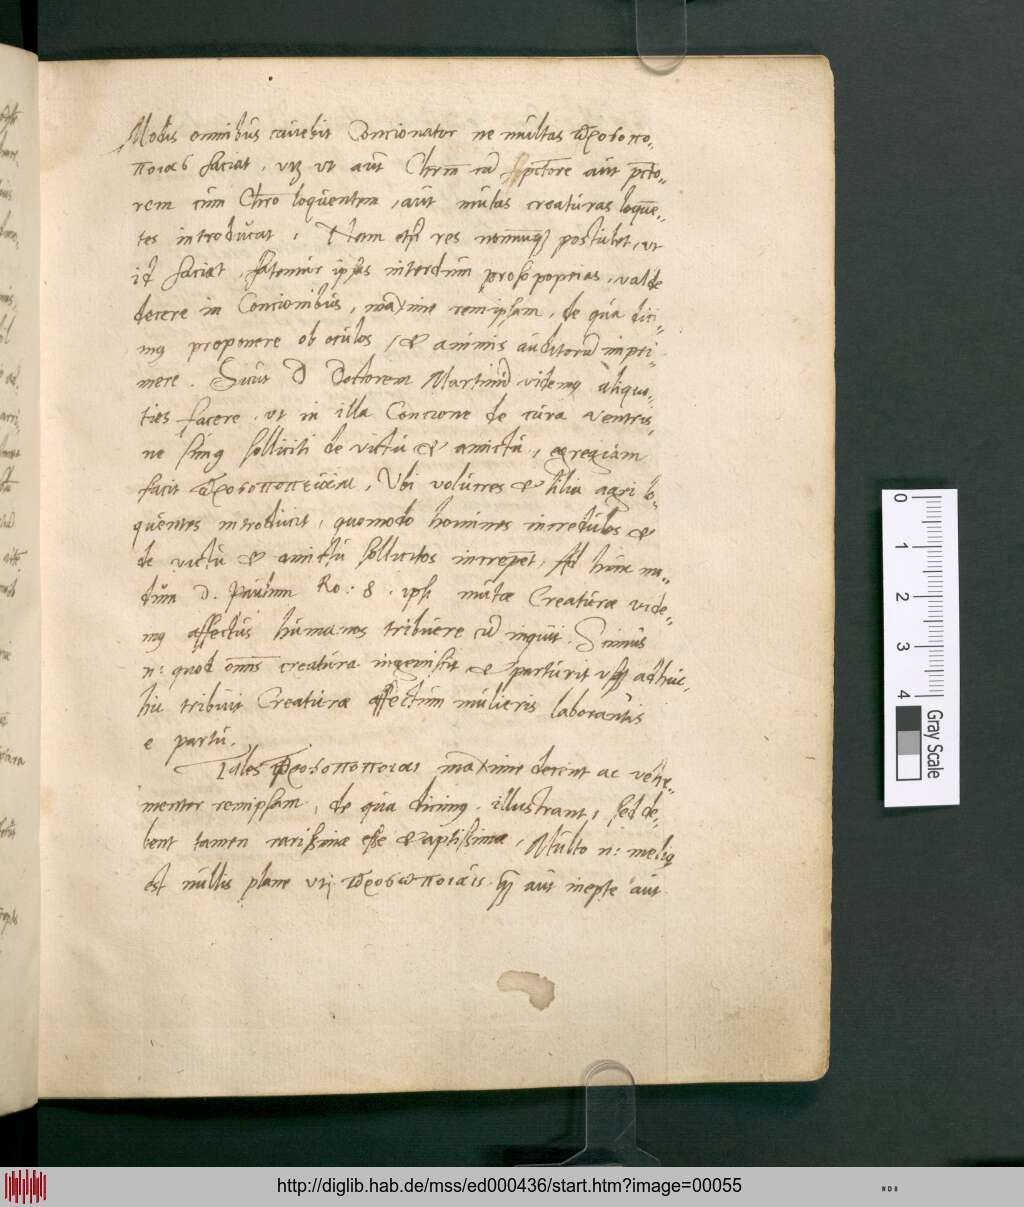 Modis omnibus cavebit Concionator ne multas προσοπο-
ποιας faciat, utz ut aut Chrm cū pctore aut pcto-
rem cum Chro loquentem, aut mutas creaturas loquē-
tes introducat, Nam etsi res nonnunq postulet, ut
id faciat, fatemur ipsas interdum prosopopeias, valde
decere in Concionibus, maxime rem ipsam, de qua dici-
mus proponere ob oculos, et animis auditorū impri-
mere. Sicut D Doctorem Martinū videmus aliquo-
ties facere, ut in illa Concione de cura ventris,
ne simus solliciti de victu et amictu, egregiam
facit προσοποπειαν, Ubi volucres et lilia agri lo-
quentes introducit, quomodo homines incredulos et
de victu et amictu sollicitos increpent, Ad hunc mo-
dum D. Paulum Ro: 8. ipsi mutae Creaturae vide-
mus affectus humanos tribuere cū inquit. Scimus
n: quod omnis creatura ingemiscit et parturit usq adhuc,
hic tribuit Creaturae affectum mulieris laborantis
e partu.
Tales προσοποποιαι maxime decent ac vehe-
menter rem ipsam, de qua dicimus, illustrant, sed de-
bent tamen rarissimae esse et aptissimae, Multo n: melius
est nullis plane uti προσωποιαις qq aut inepte aut
0 1 2 3 4
Gray Scale
http://diglib.hab.de/mss/ed000436/start.htm?image=00055
WDB